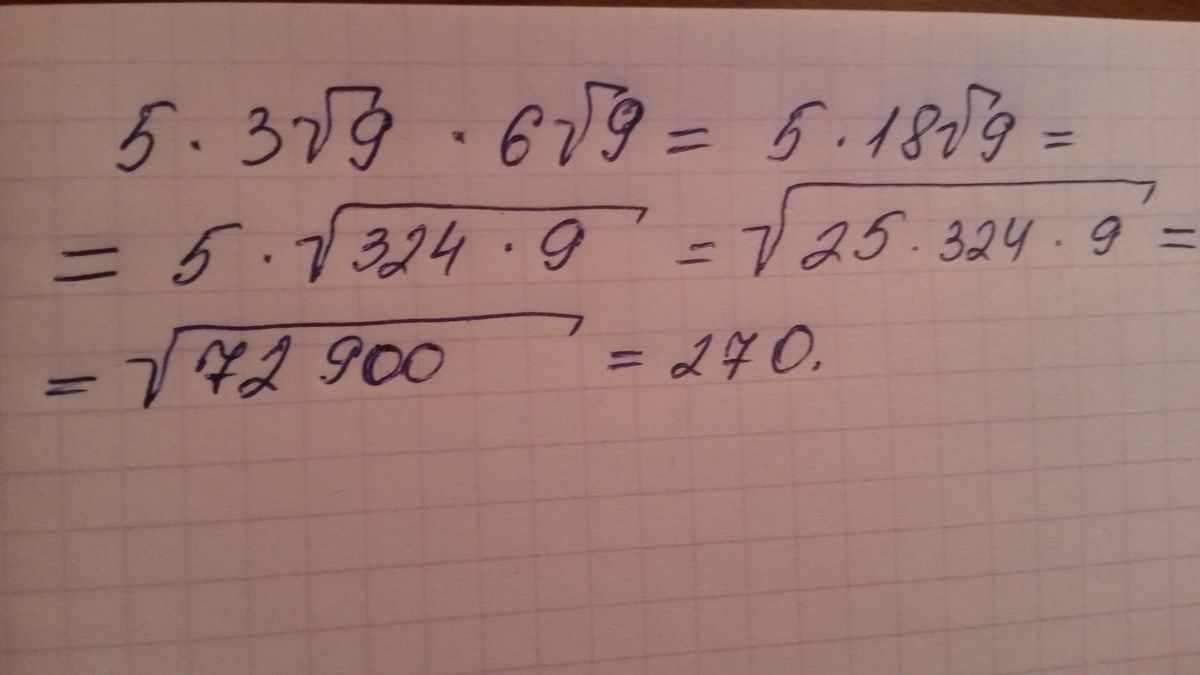 5 · 3√9 · 6√9 = 5 · 18√9 =
= 5 · √324 · 9 = √25 · 324 · 9 =
= √72 900 = 270.